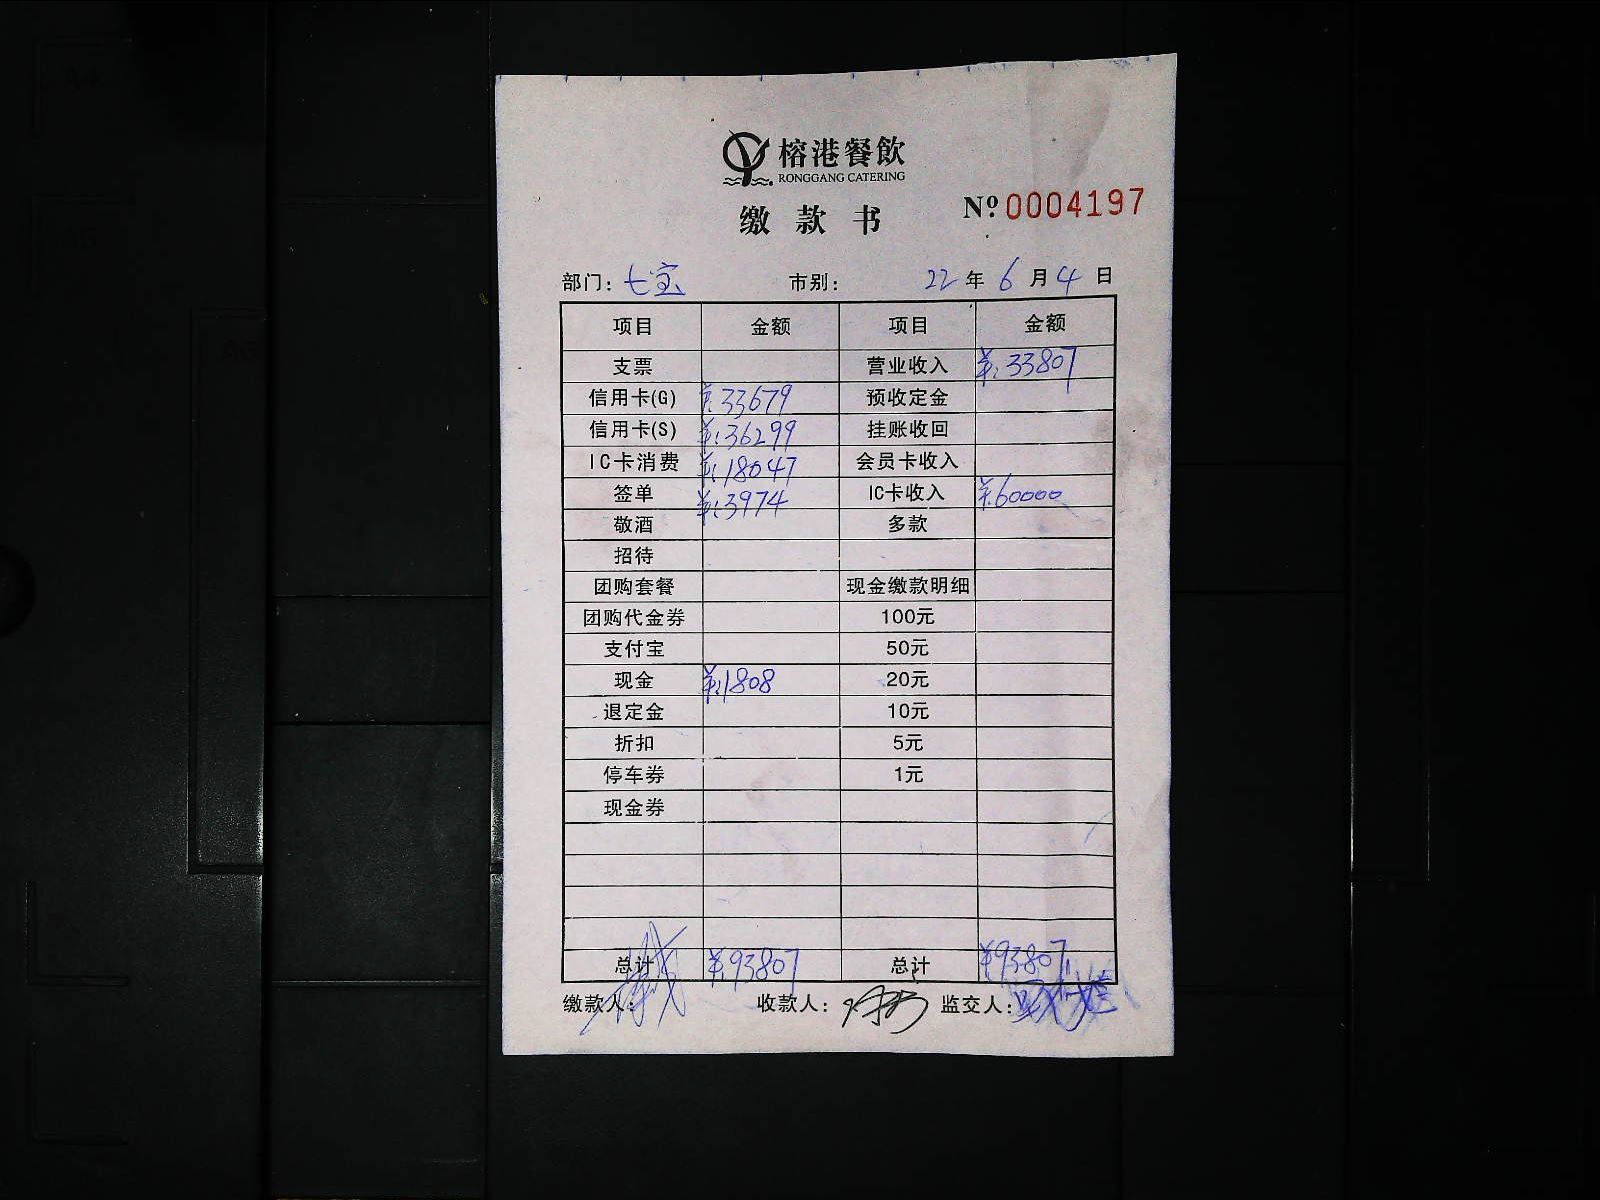 榕港餐飲
RONGGANG CATERING
缴款书
Nº 0004197
部门：七宝 市别： 22年6月4日
项目 金额 项目 金额
支票 营业收入 ¥:33807
信用卡(G) ¥:33679 预收定金
信用卡(S) ¥:36299 挂账收回
IC卡消费 ¥:18047 会员卡收入
签单 ¥:3974 IC卡收入 ¥:60000
敬酒 多款
招待
团购套餐 现金缴款明细
团购代金券 100元
支付宝 50元
现金 ¥:1808 20元
退定金 10元
折扣 5元
停车券 1元
现金券
总计 ¥:93807 总计 ¥93807
缴款人： 收款人： 监交人：